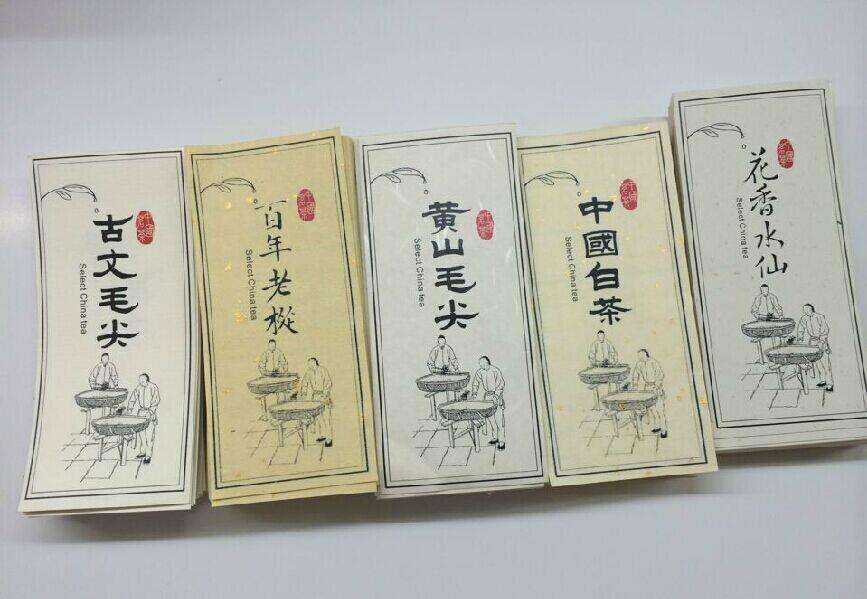 古文毛尖
Select China tea
百年老樅
Select China tea
黄山毛尖
Select China tea
中國白茶
Select China tea
花香水仙
Select China tea